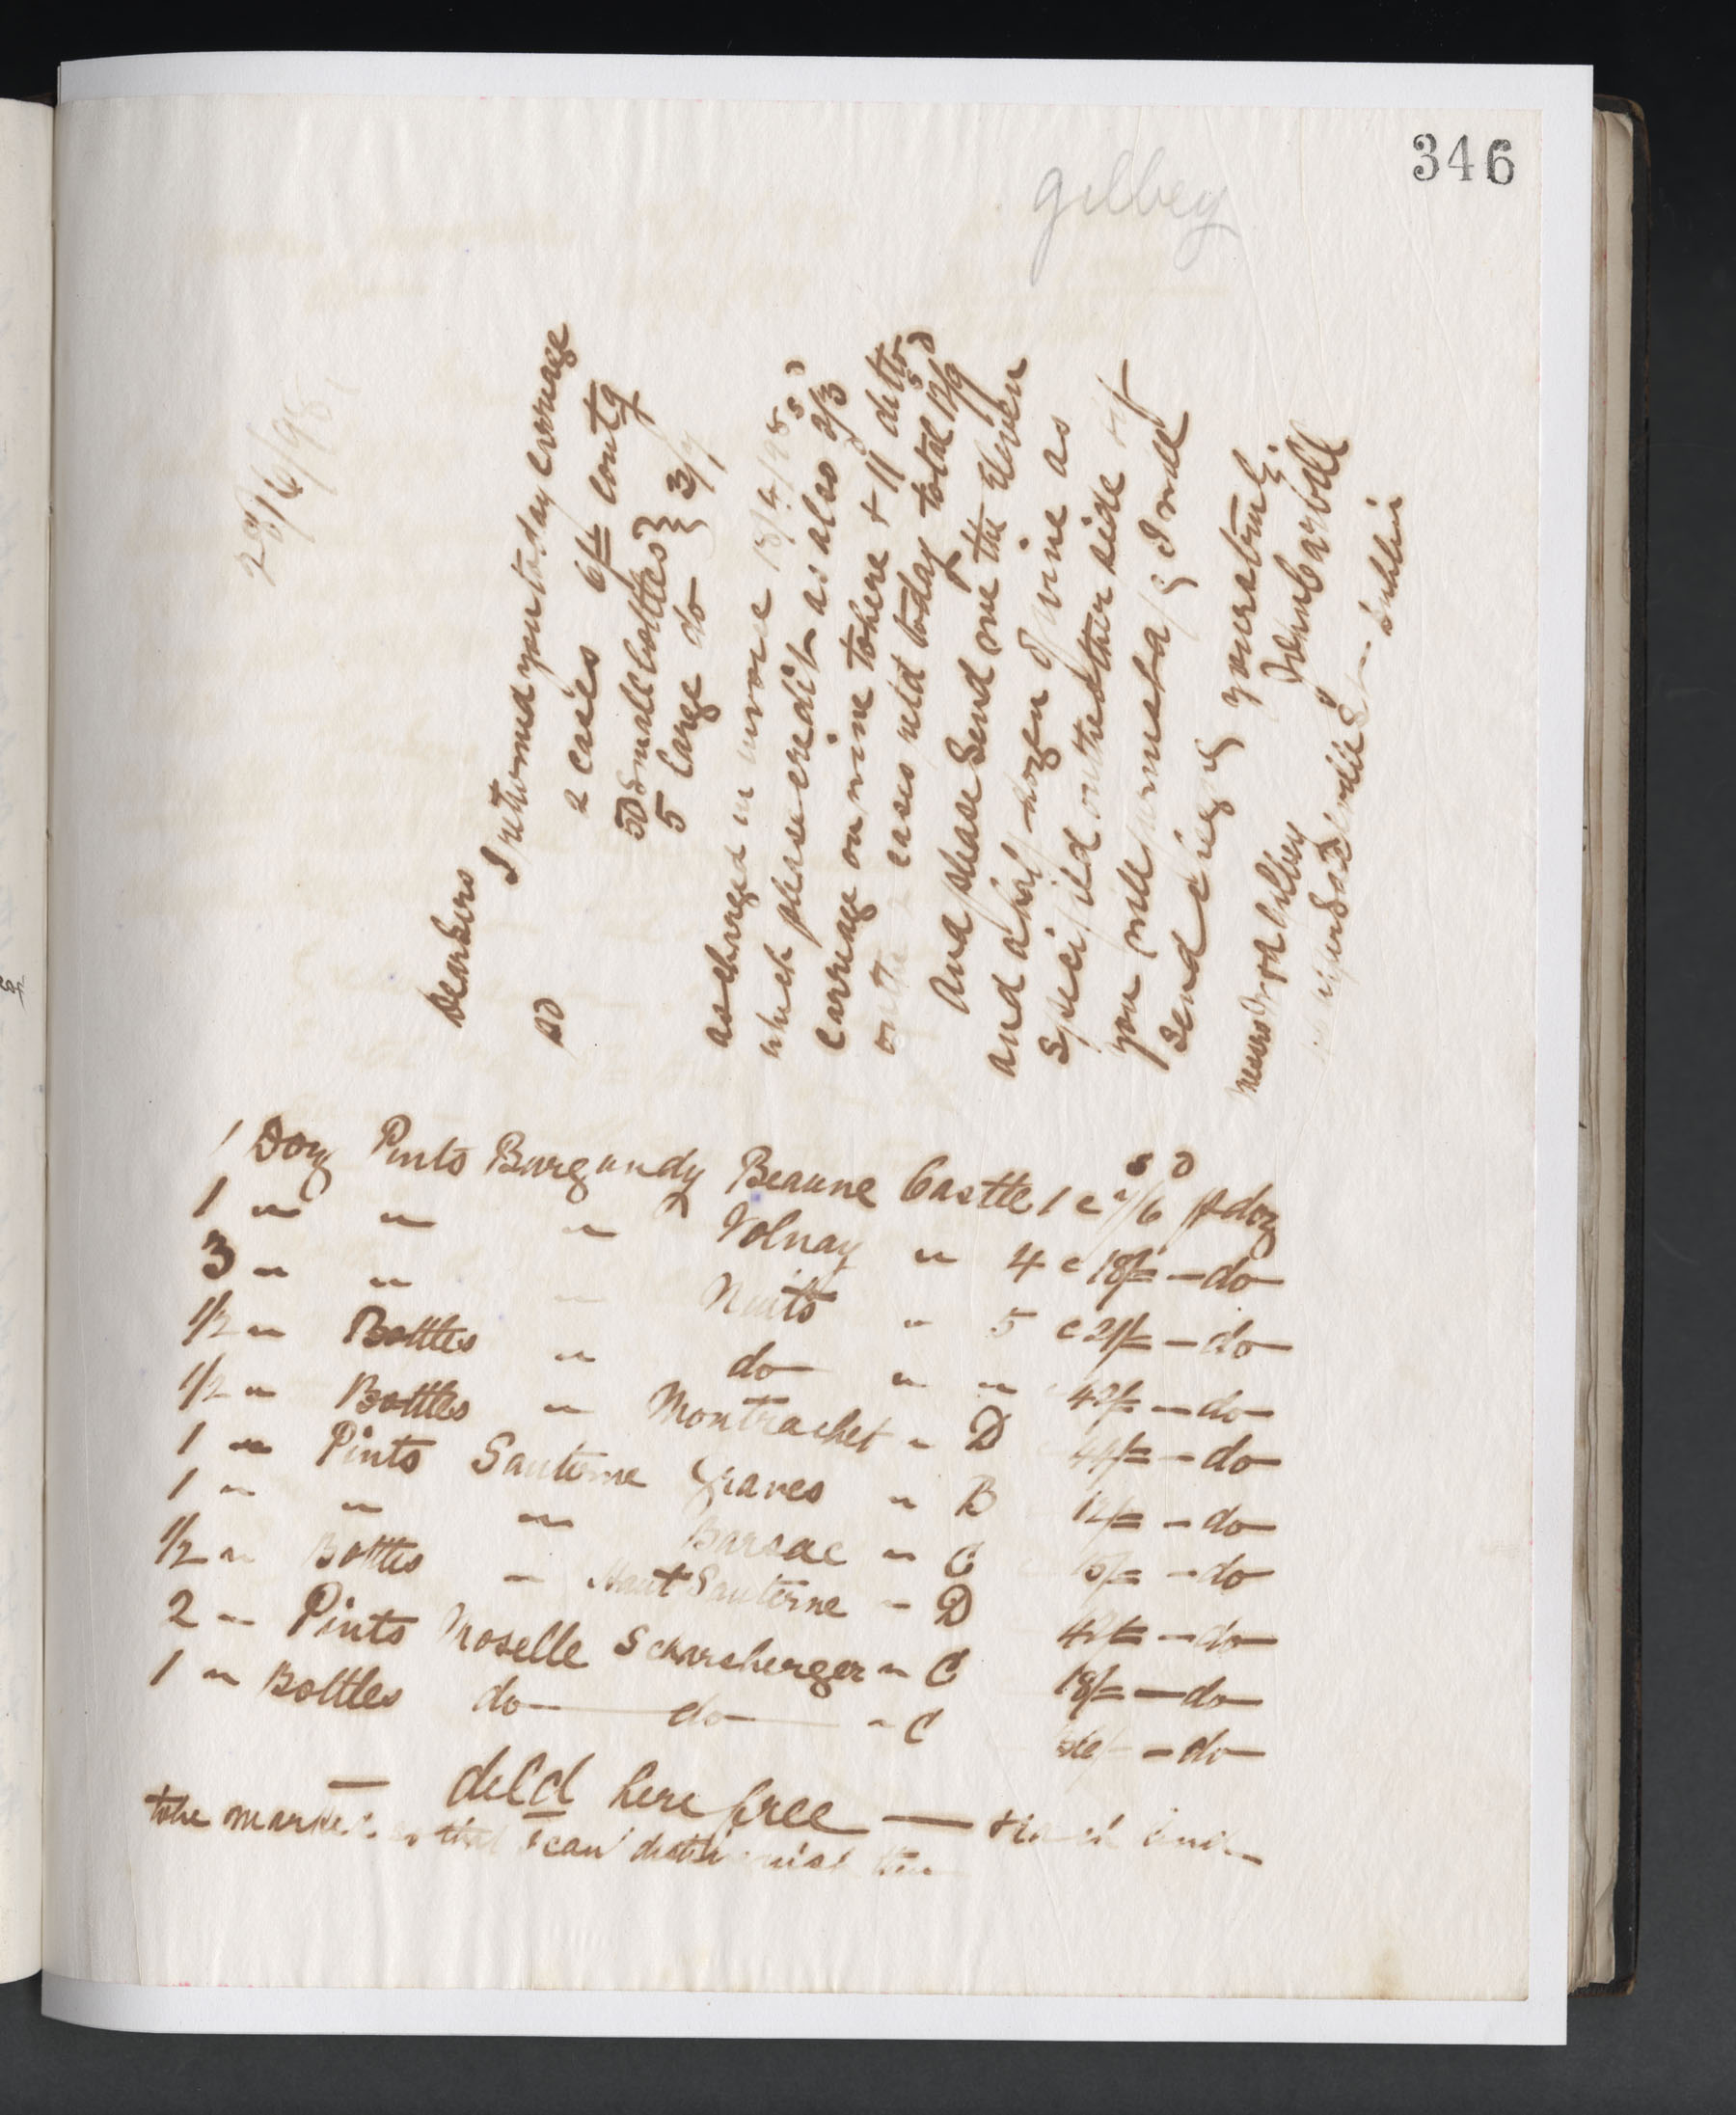 346
gilbey
28/6/98
Dear Sirs
I returned you today carriage
pd 2 cases 6/= contg
50 Small bottles } 3/7
5 large do }
as charged in invoice 18/4/98
which please credit as also 2/3
carriage on nine to here & 11 ditto
on the cases retd today total 12/9
And please Send me the eleven
and a half dozen of wine as
Specified on the other side if
you will I will
Send
yours truly
John Carboll
Messrs W & A Gilbey
Dublin
1 Doz Pints Burgundy Beaune Castle 1 c /6 p doz
1 " " " Volnay " 4 c 18/= - do
3 " " " Nuits " 5 c 21/= - do
1/2 " Bottles " do " " 42/= - do
1/2 " Bottles " Montrachet " D 44/= - do
1 " Pints Sauterne Graves " B 12/= - do
1 " " " Barsac " C 15/= - do
1/2 " Bottles " Haut Sauterne " D 42/= - do
2 " Pints Moselle Scharzberger " C 18/= - do
1 " Bottles do do " C 36/- - do
— deld here free — &
to be marked so that I can distinguish